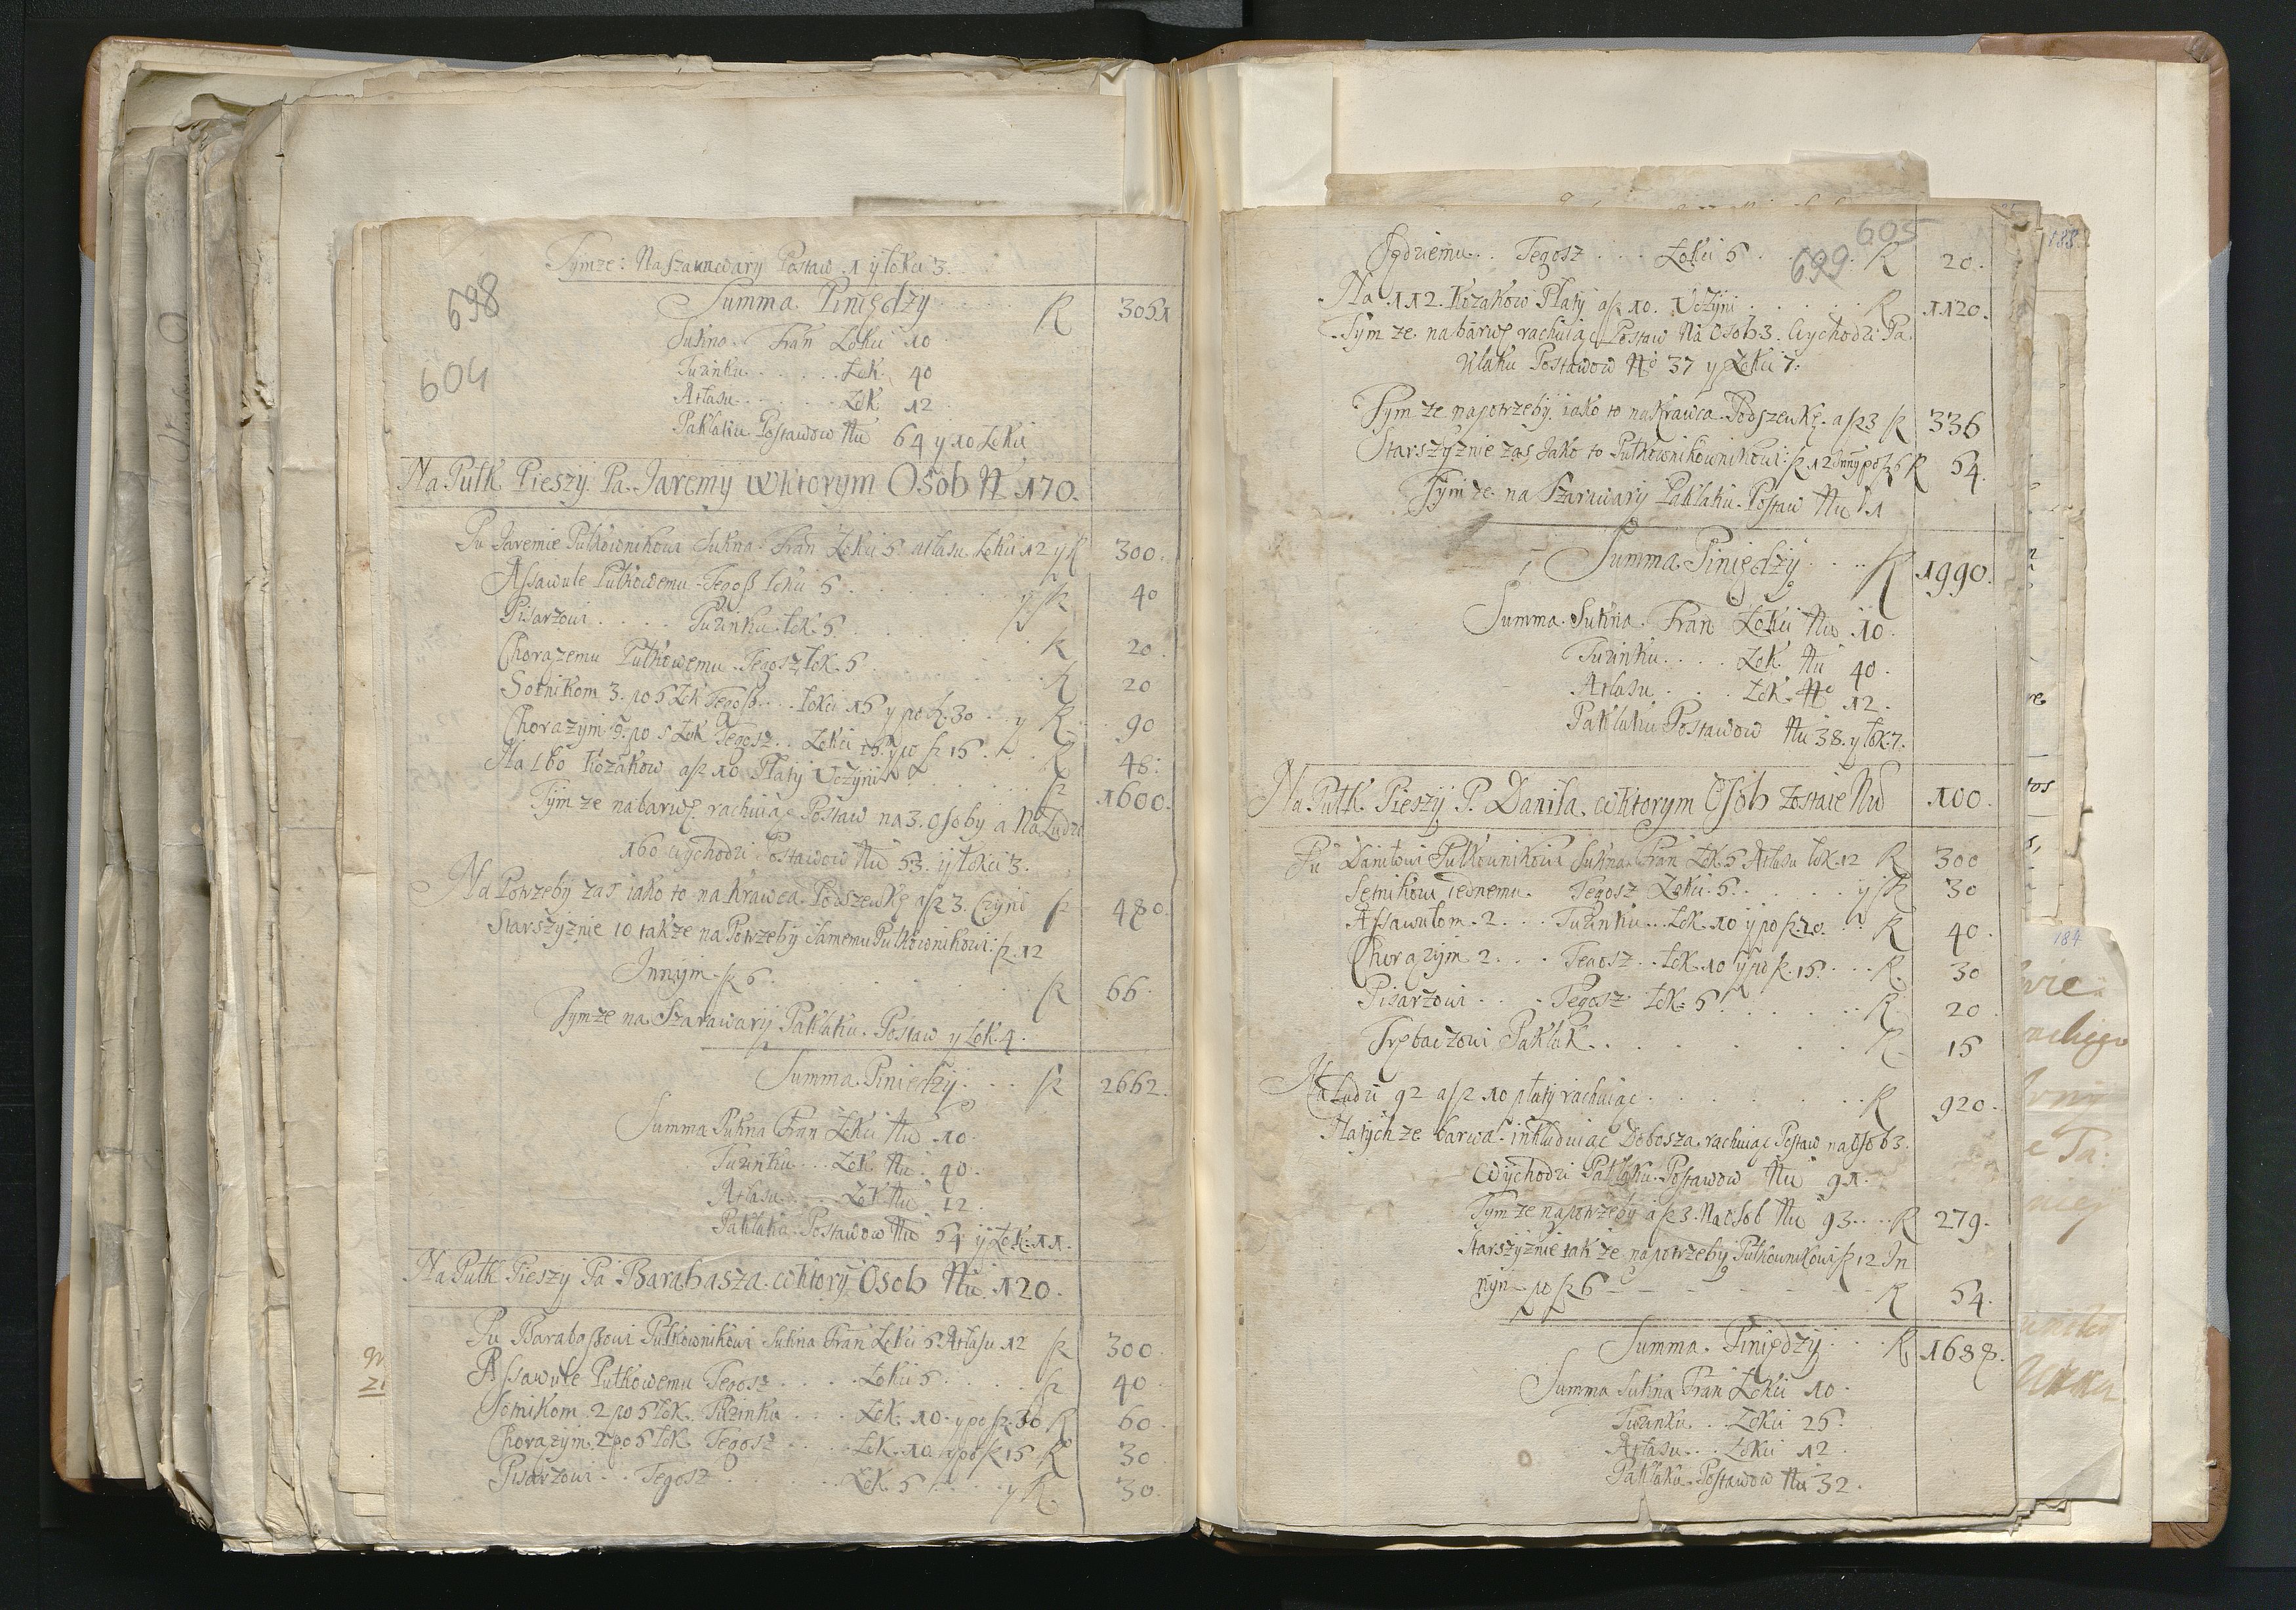 698
604
Tymze: Na Szarawary Postaw 1 y łokci 3.
Summa Piniędzy R 3051
Sukna Fran Łokci 10
Tuzinku Łok. 40
Atłasu Łok 12
Paklaku Postawow Nu 64 y 10 Łokci
Na Pułk Pieszy Pa. Jaremy w ktorym Osob N 170.
Pu Jaremie Pułkownikowi Sukna Fran Łokci 5 atłasu łokci 12 y R 300.
Assawule Pułkowemu Tegoß łokci 5 y R 40
Pisarzowi Tuzinku łok. 5. R 20
Chorązemu Pułkowemu Tegosz łok. 5 R 20
Sotnikom 3. po 5 Łok Tegoß łokci 15 y po R. 30 y R 90
Chorązym 3. po 5 Łok Tegosz Łokci 15. y po R 15 R 48.
Na 160 Kozakow a R 10 Płaty Uczyni R 1600.
Tym ze na barwę rachuiąc Postaw na 3. Osoby a Na Ludzi
160 wychodzi Postawow Nu 53. y łokci 3.
Na Potrzeby zas iako to na Krawca Podszewkę a R 3. Czyni R 480.
Starszyznie to takze na Potrzeby Samemu Pułkownikowi R. 12
Innym R 6. R 66.
Tymze na Szarawary Paklaku Postaw y Łok. 4.
Summa Piniędzy R 2662.
Summa Sukna Fran Łokci Nu 10.
Tuzinku Łok Nu 40.
Atłasu Łok Nu 12.
Paklaku Postawow Nu 54 y Łok. 11.
Na Pułk Pieszy Pa Barabasza w ktory Osob Nu. 120.
Pu Barabaßowi Pułkownikowi Sukna Fran Łokci 5 Atłasu 12 R 300
Assawule Pułkowemu Tegosz Łokci 5 R 40.
Sotnikom 2 po 5 łok. Tuzinku Łok. 10. y po R. 30 R 60.
Chorązym. 2 po 5 łok Tegosz Łok. 10. y po R 15 R 30
Pisarzowi Tegosz Łok. 5 y R. 30.
605
699
Sędziemu Tegosz Łokci 5 R 20.
Na 112. Kozakow Płaty a R 10. Uczyni R 1120.
Tym ze na barwę rachuiąc Postaw Na Osob 3. Wychodzi Pa
klaku Postawow No 37 y Łokci 7.
Tym ze na potrzeby iako to na Krawca Podszewkę a R 3 R 336
Starszyznie zas Jako to Pułkownikownikowi R 12 Inny po R 6 R 54.
Tym ze na Szarawary Paklaku Postaw Nu 1
Summa Piniędzy R 1990.
Summa Sukna Fran Łokci Nu 10.
Tuzinku Łok. Nu 40.
Atłasu Łok. No 12.
Paklaku Postawow Nu 38. y łok. 7.
Na Pułk Pieszy P. Daniła w ktorym Osob zostaie Nu 100.
Pu Daniłowi Pułkownikowi Sukna Fran Łok. 5 Atłasu łok. 12 R 300
Setnikowi iednemu Tegosz Łokci 5. y R 30
Assawulom 2. Tuzinku Łok. 10 y po R. 20. R 40.
Chorązym 2. Tegosz łok. 10 y po R. 15. R. 30
Pisarzowi Tegosz łok. 5 R 20
Trębaczowi Paklak R 15
Na Ludzi 92 a R 10 płaty rachuiąc R 920.
Na tych ze barwa inkluduiąc Dobosza rachuiąc Postaw na Osob 3.
Wychodzi Paklaku Postawow Nu 31.
Tym ze na potrzeby a R 3. Na Osob Nu 93. R 279.
Starszyznie tak ze na potrzeby Pułkownikowi R 12 In
nym po R 6 R 54.
Summa Piniędzy R 1688.
Summa Sukna Fran Łokci 10.
Tuzinku Łokci 25.
Atłasu Łokci 12.
Paklaku Postawow Nu 32.
188
184